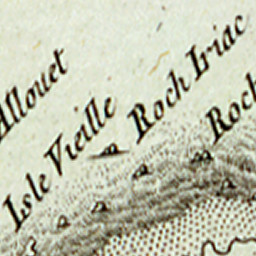 Allouet
Isle Vieille
Roch Iriac
Roch